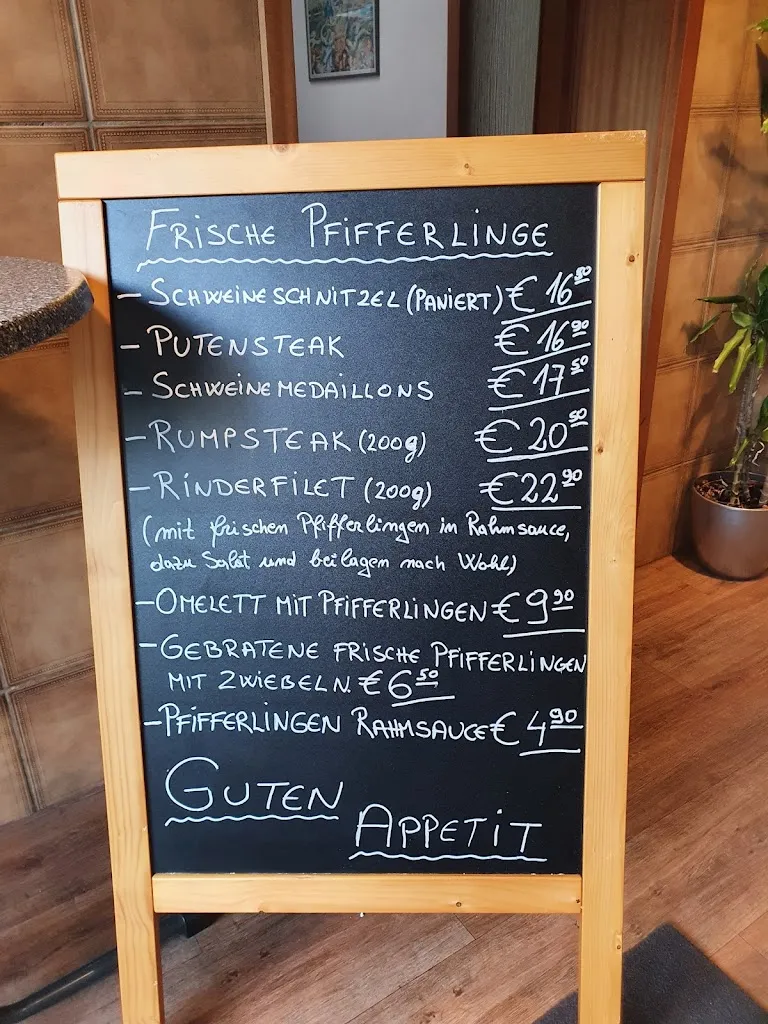 FRISCHE PFIFFERLINGE
- SCHWEINESCHNITZEL (PANIERT) € 16⁹⁰
- PUTENSTEAK € 16⁹⁰
- SCHWEINEMEDAILLONS € 17⁵⁰
- RUMPSTEAK (200g) € 20⁵⁰
- RINDERFILET (200g) € 22⁹⁰
(mit frischen Pfifferlingen in Rahmsauce,
dazu Salat und beilagen nach Wohl)
- OMELETT MIT PFIFFERLINGEN € 9⁹⁰
- GEBRATENE FRISCHE PFIFFERLINGEN
MIT ZWIEBELN € 6⁵⁰
- PFIFFERLINGEN RAHMSAUCE € 4⁹⁰
GUTEN
APPETIT